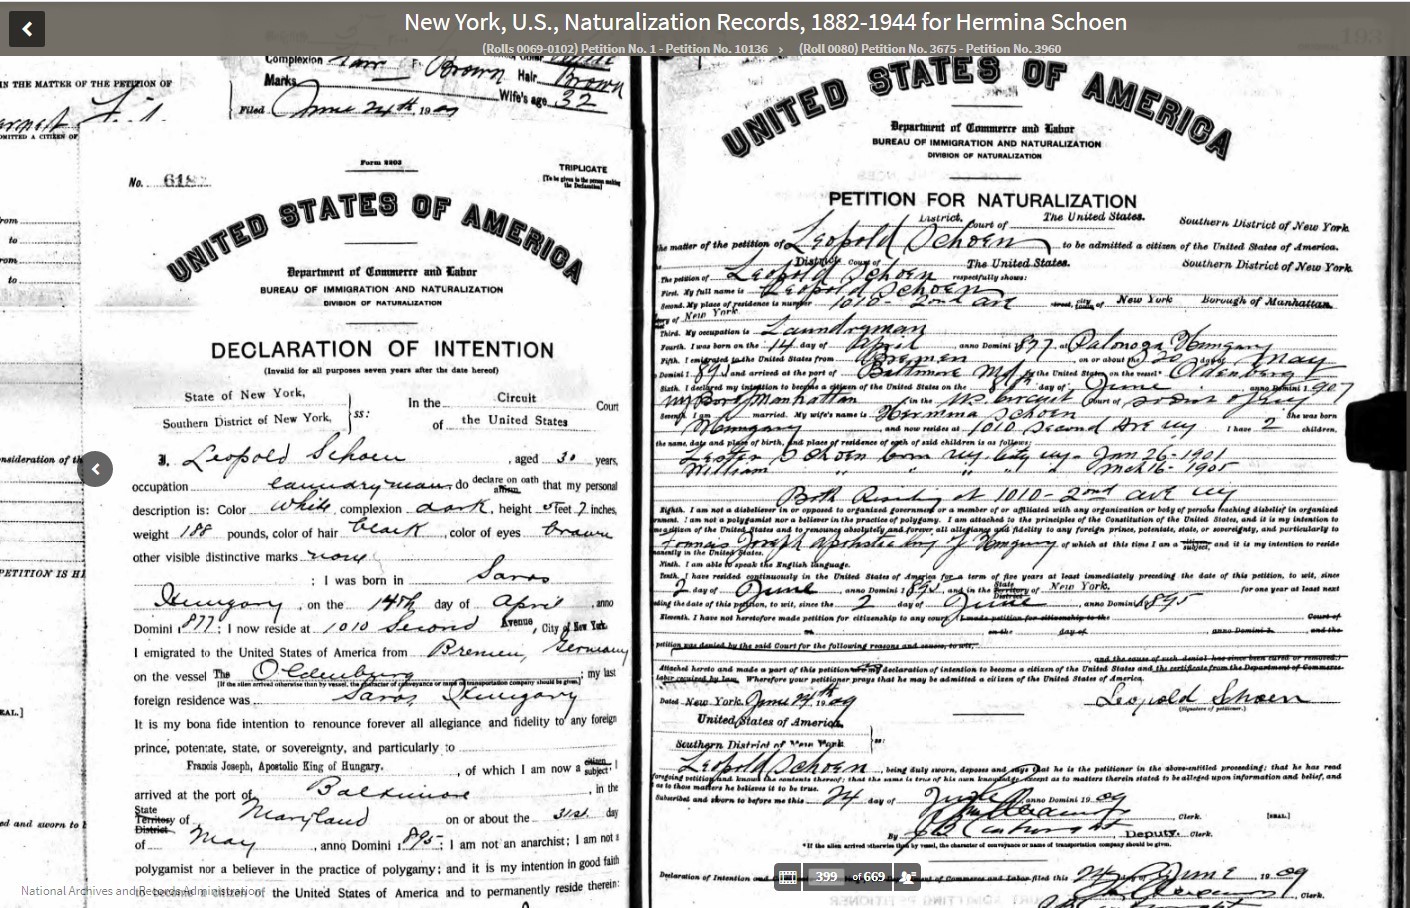 New York, U.S., Naturalization Records, 1882-1944 for Hermina Schoen
(Rolls 0069-0102) Petition No. 1 - Petition No. 10136 › (Roll 0080) Petition No. 3675 - Petition No. 3960
IN THE MATTER OF THE PETITION OF
ADMITTED A CITIZEN OF
from
to
from
to
PETITION IS
ed and sworn to
Complexion Fair Brown Hair Brown
Marks Wife's age 32
Filed June 24th, 1909
Form 2203
TRIPLICATE
[To be given to the person making the Declaration]
No. 618
UNITED STATES OF AMERICA
Department of Commerce and Labor
BUREAU OF IMMIGRATION AND NATURALIZATION
DIVISION OF NATURALIZATION
DECLARATION OF INTENTION
(Invalid for all purposes seven years after the date hereof)
State of New York,
Southern District of New York, ss:
In the Circuit Court
of the United States
I, Leopold Schoen, aged 30 years,
occupation Laundryman, do declare on oath affirm that my personal
description is: Color White, complexion dark, height 5 feet 7 inches,
weight 188 pounds, color of hair black, color of eyes brown
other visible distinctive marks none
; I was born in Saros
Hungary, on the 14th day of April, anno
Domini 1877; I now reside at 1010 Second Avenue, City of New York
I emigrated to the United States of America from Bremen, Germany
on the vessel The Oldenburg; my last
[If the alien arrived otherwise than by vessel, the character of conveyance or name of transportation company should be given.]
foreign residence was Saros, Hungary
It is my bona fide intention to renounce forever all allegiance and fidelity to any foreign
prince, potentate, state, or sovereignty, and particularly to
Francis Joseph, Apostolic King of Hungary, of which I am now a citizen subject; I
arrived at the port of Baltimore, in the
State Territory District of Maryland on or about the 31st day
of May, anno Domini 1895; I am not an anarchist; I am not a
polygamist nor a believer in the practice of polygamy; and it is my intention in good faith
to become a citizen of the United States of America and to permanently reside therein:
National Archives and Records Administration
UNITED STATES OF AMERICA
Department of Commerce and Labor
BUREAU OF IMMIGRATION AND NATURALIZATION
DIVISION OF NATURALIZATION
PETITION FOR NATURALIZATION
District Court of The United States. Southern District of New York
the matter of the petition of Leopold Schoen to be admitted a citizen of the United States of America.
District Court of The United States. Southern District of New York.
The petition of Leopold Schoen respectfully shows:
First. My full name is Leopold Schoen
Second. My place of residence is number 1010 - 2nd Ave street, city of New York Borough of Manhattan
New York
Third. My occupation is Laundryman
Fourth. I was born on the 14 day of April anno Domini 1877 at Hungary
Fifth. I emigrated to the United States from Bremen on or about the 20 day of May
Domini 1895 and arrived at the port of Baltimore Md, in the United States on the vessel Oldenberg
Sixth. I declared my intention to become a citizen of the United States on the 8th day of June anno Domini 1907
Manhattan in the U.S. Circuit Court of
Seventh. I am married. My wife's name is Hermina Schoen She was born
Hungary and now resides at 1010 Second Ave NY I have 2 children,
the name, date and place of birth, and place of residence of each of said children is as follows:
Lester Schoen born NY City NY - Jan 26 - 1901
William " " " " " Mch 16 - 1905
Both Residing at 1010 - 2nd Ave NY
Eighth. I am not a disbeliever in or opposed to organized government or a member of or affiliated with any organization or body of persons teaching disbelief in organized
ernment. I am not a polygamist nor a believer in the practice of polygamy. I am attached to the principles of the Constitution of the United States, and it is my intention to
me a citizen of the United States and to renounce absolutely and forever all allegiance and fidelity to any foreign prince, potentate, state, or sovereignty, and particularly to
Francis Joseph Apostolic King of Hungary of which at this time I am a citizen subject, and it is my intention to reside
manently in the United States.
Ninth. I am able to speak the English language.
Tenth. I have resided continuously in the United States of America for a term of five years at least immediately preceding the date of this petition, to wit, since
2 day of June, anno Domini 1895, and in the State Territory District of New York. for one year at least next
ding the date of this petition, to wit, since the 2 day of June, anno Domini 1895
Eleventh. I have not heretofore made petition for citizenship to any court. I made petition for citizenship to the Court of
on the day of, anno Domini 1 and the
petition was denied by the said Court for the following reasons and causes, to wit,
and the cause of such denial has since been cured or removed.)
Attached hereto and made a part of this petition declaration of intention to become a citizen of the United States and the certificate from the Department of Commerce
Labor required by law. Wherefore your petitioner prays that he may be admitted a citizen of the United States of America.
Dated New York, June 24th 1909 Leopold Schoen
(Signature of petitioner.)
United States of America,
Southern District of New York ss:
Leopold Schoen, being duly sworn, deposes and says that he is the petitioner in the above-entitled proceeding; that he has read
foregoing petition and knows the contents thereof; that the same is true of his own knowledge except as to matters therein stated to be alleged upon information and belief, and
as to those matters he believes it to be true.
Subscribed and sworn to before me this 24 day of June, anno Domini 1909
Clerk. [SEAL.]
By Deputy. Clerk.
* If the alien arrived otherwise than by vessel, the character of conveyance or name of transportation company should be given.
399 of 669
Declaration of Intention filed this 24 day of June, 1909
Clerk.